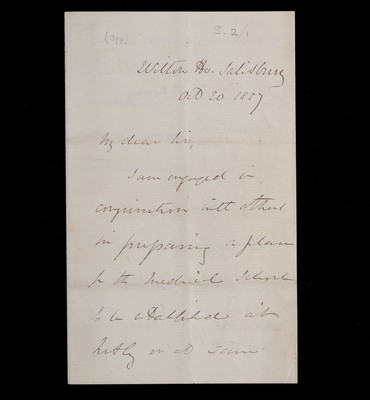 (394) S. 2/1
Wilton Ho. Salisbury
Oct 20 1857
My dear Sir,
I am engaged in
conjunction with others
in preparing a plan
for the Medical School
to be established at
or at some